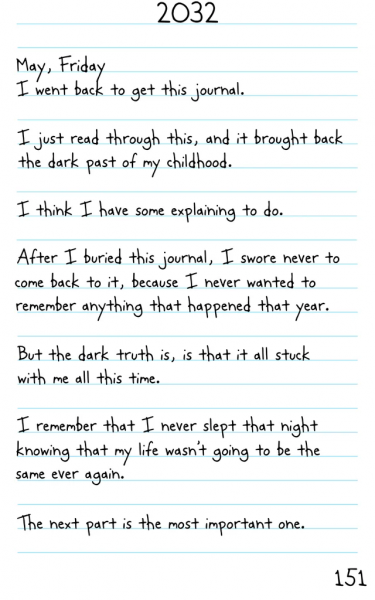 2032
May, Friday
I went back to get this journal.
I just read through this, and it brought back
the dark past of my childhood.
I think I have some explaining to do.
After I buried this journal, I swore never to
come back to it, because I never wanted to
remember anything that happened that year.
But the dark truth is, is that it all stuck
with me all this time.
I remember that I never slept that night
knowing that my life wasn't going to be the
same ever again.
The next part is the most important one.
151